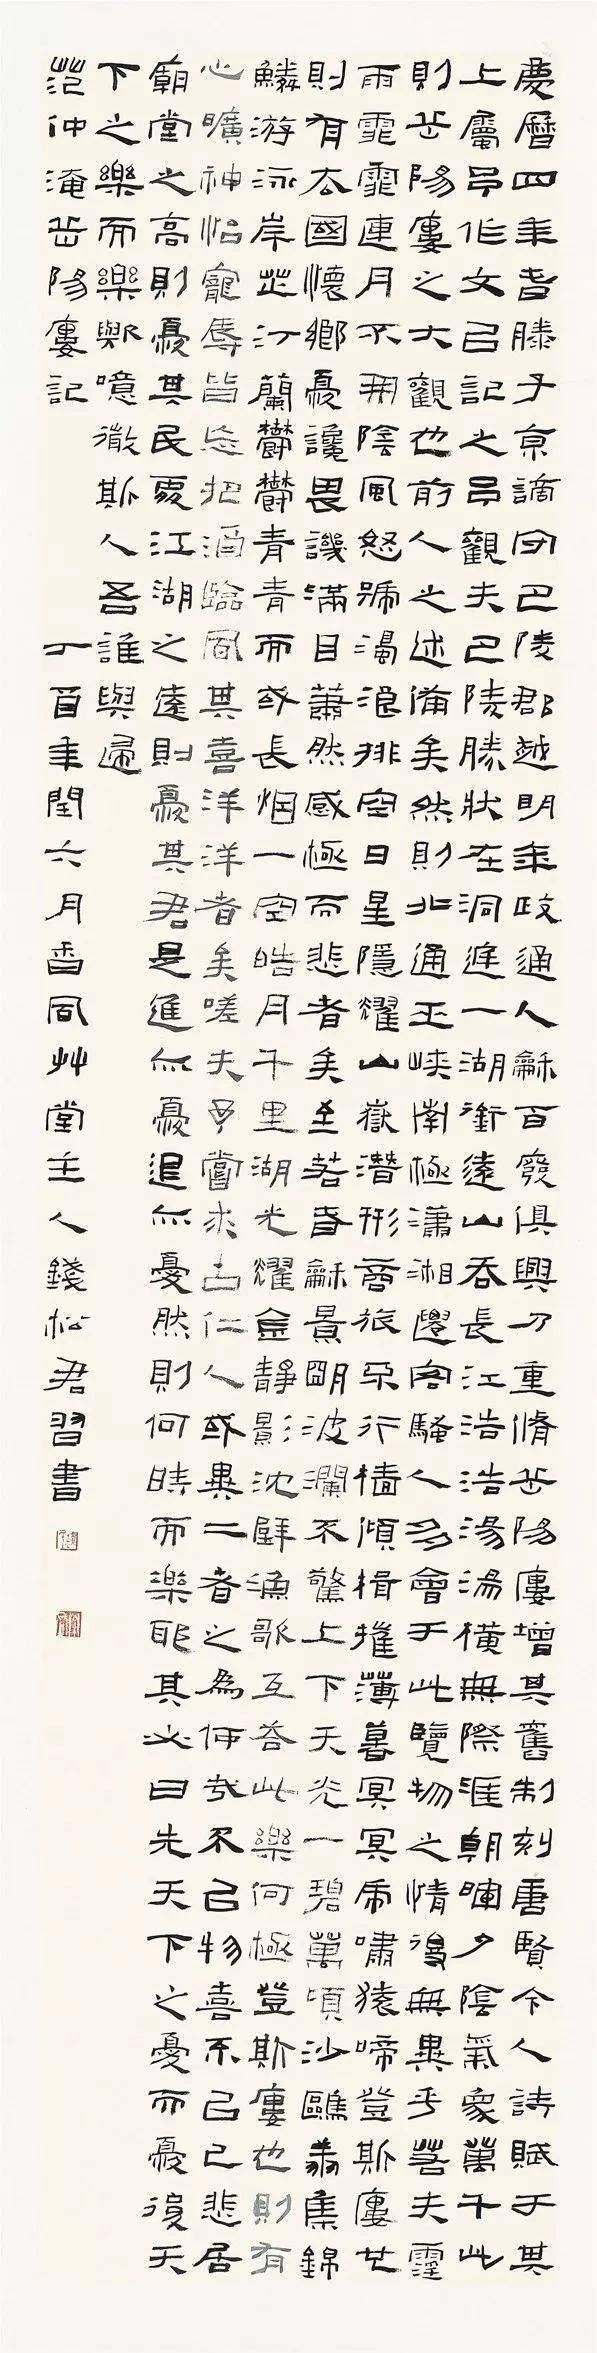 慶曆四年春滕子京謫守巴陵郡越明年政通人龢百廢俱興乃重脩岳陽樓增其舊制刻唐賢今人詩賦于其
上屬予作文以記之予觀夫巴陵勝狀在洞庭一湖銜遠山吞長江浩浩湯湯橫無際涯朝暉夕陰氣象萬千此
則岳陽樓之大觀也前人之述備矣然則北通巫峽南極瀟湘遷客騷人多會于此覽物之情得無異乎若夫霪
雨霏霏連月不開陰風怒號濁浪排空日星隱耀山嶽潛形商旅不行檣傾楫摧薄暮冥冥虎嘯猿啼登斯樓也
則有去國懷鄉憂讒畏譏滿目蕭然感極而悲者矣至若春龢景明波瀾不驚上下天光一碧萬頃沙鷗翔集錦
鱗游泳岸芷汀蘭鬱鬱青青而或長烟一空皓月千里湖光耀金靜影沈璧漁歌互答此樂何極登斯樓也則有
心曠神怡寵辱皆忘把酒臨風其喜洋洋者矣嗟夫予嘗求古仁人或異二者之為何哉不以物喜不以己悲居
廟堂之高則憂其民處江湖之遠則憂其君是進亦憂退亦憂然則何時而樂耶其必曰先天下之憂而憂後天
下之樂而樂歟噫微斯人吾誰與歸
范仲淹岳陽樓記 丁酉年閏六月香風艸堂主人錢松君習書